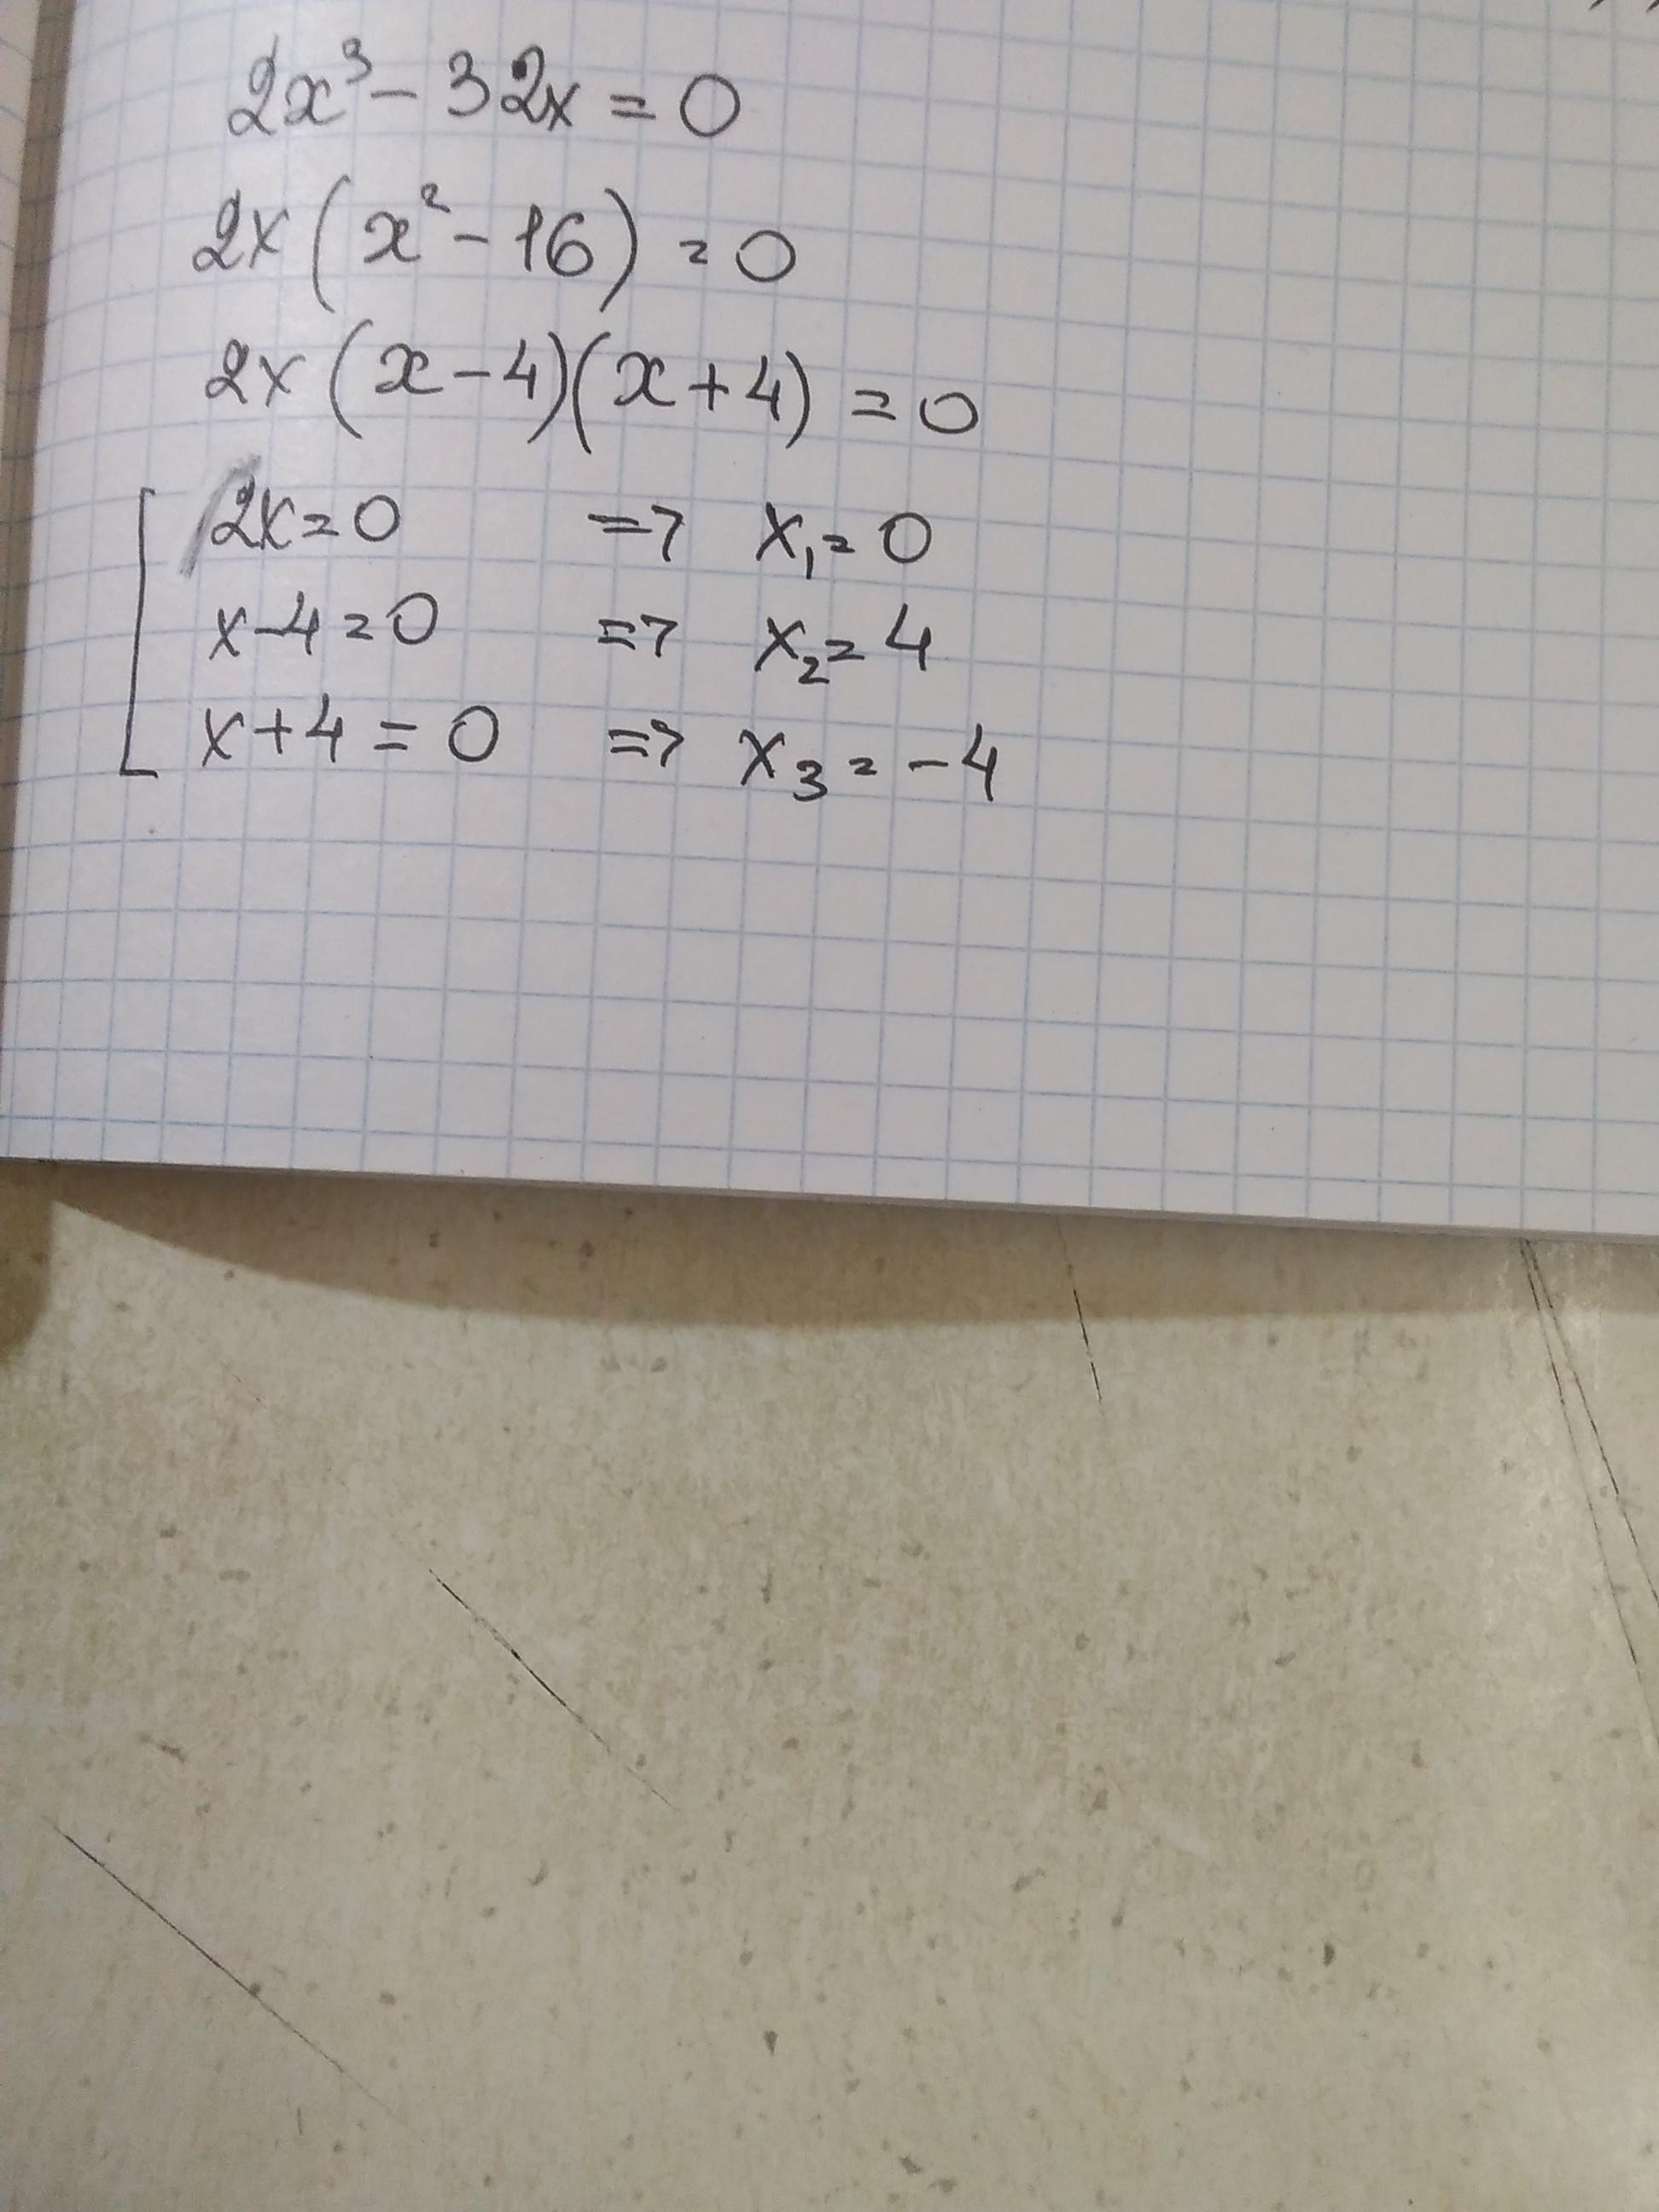 2x³ - 32x = 0
2x (x² - 16) = 0
2x (x - 4)(x + 4) = 0
[ 2x = 0 => x₁ = 0
x - 4 = 0 => x₂ = 4
x + 4 = 0 => x₃ = -4